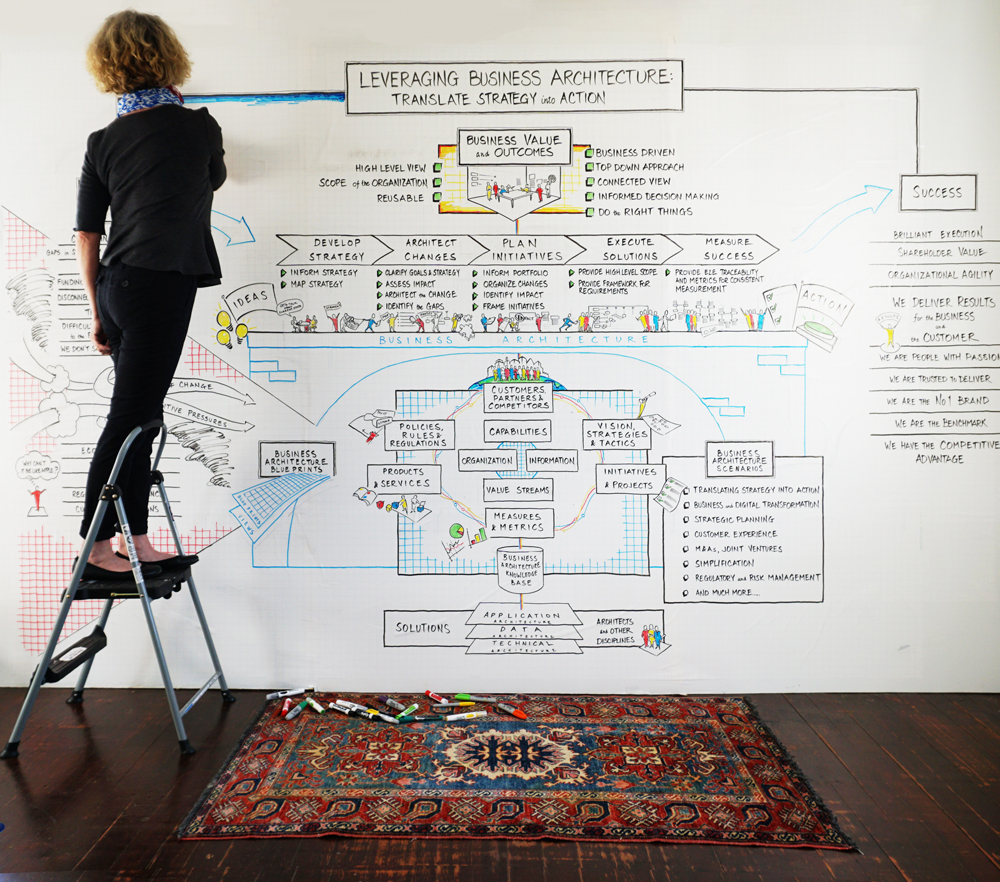 LEVERAGING BUSINESS ARCHITECTURE:
TRANSLATE STRATEGY into ACTION
BUSINESS VALUE
and OUTCOMES
HIGH LEVEL VIEW
SCOPE of the ORGANIZATION
REUSABLE
BUSINESS DRIVEN
TOP DOWN APPROACH
CONNECTED VIEW
INFORMED DECISION MAKING
DO the RIGHT THINGS
DEVELOP
STRATEGY
INFORM STRATEGY
MAP STRATEGY
ARCHITECT
CHANGES
CLARIFY GOALS & STRATEGY
ASSESS IMPACT
ARCHITECT the CHANGE
IDENTIFY the GAPS
PLAN
INITIATIVES
INFORM PORTFOLIO
ORGANIZE CHANGES
IDENTIFY IMPACT
FRAME INITIATIVES
EXECUTE
SOLUTIONS
PROVIDE HIGH LEVEL SCOPE
PROVIDE FRAMEWORK FOR
REQUIREMENTS
MEASURE
SUCCESS
PROVIDE E2E TRACEABILITY
AND METRICS FOR CONSISTENT
MEASUREMENT
IDEAS
ACTION
BUSINESS ARCHITECTURE
CUSTOMERS,
PARTNERS &
COMPETITORS
POLICIES,
RULES &
REGULATIONS
CAPABILITIES
VISION,
STRATEGIES
& TACTICS
ORGANIZATION
INFORMATION
PRODUCTS
& SERVICES
VALUE STREAMS
INITIATIVES
& PROJECTS
MEASURES
& METRICS
BUSINESS
ARCHITECTURE
KNOWLEDGE
BASE
BUSINESS
ARCHITECTURE
BLUEPRINTS
BUSINESS
ARCHITECTURE
SCENARIOS
TRANSLATING STRATEGY INTO ACTION
BUSINESS and DIGITAL TRANSFORMATION
STRATEGIC PLANNING
CUSTOMER EXPERIENCE
M&As, JOINT VENTURES
SIMPLIFICATION
REGULATORY and RISK MANAGEMENT
AND MUCH MORE...
SOLUTIONS
APPLICATION
ARCHITECTURE
DATA
ARCHITECTURE
TECHNICAL
ARCHITECTURE
ARCHITECTS
and OTHER
DISCIPLINES
SUCCESS
BRILLIANT EXECUTION
SHAREHOLDER VALUE
ORGANIZATIONAL AGILITY
WE DELIVER RESULTS
for the BUSINESS
and
the CUSTOMER
WE ARE PEOPLE WITH PASSION
WE ARE TRUSTED to DELIVER
WE ARE the No 1 BRAND
WE ARE the BENCHMARK
WE HAVE the COMPETITIVE
ADVANTAGE
CHANGE
PRESSURES